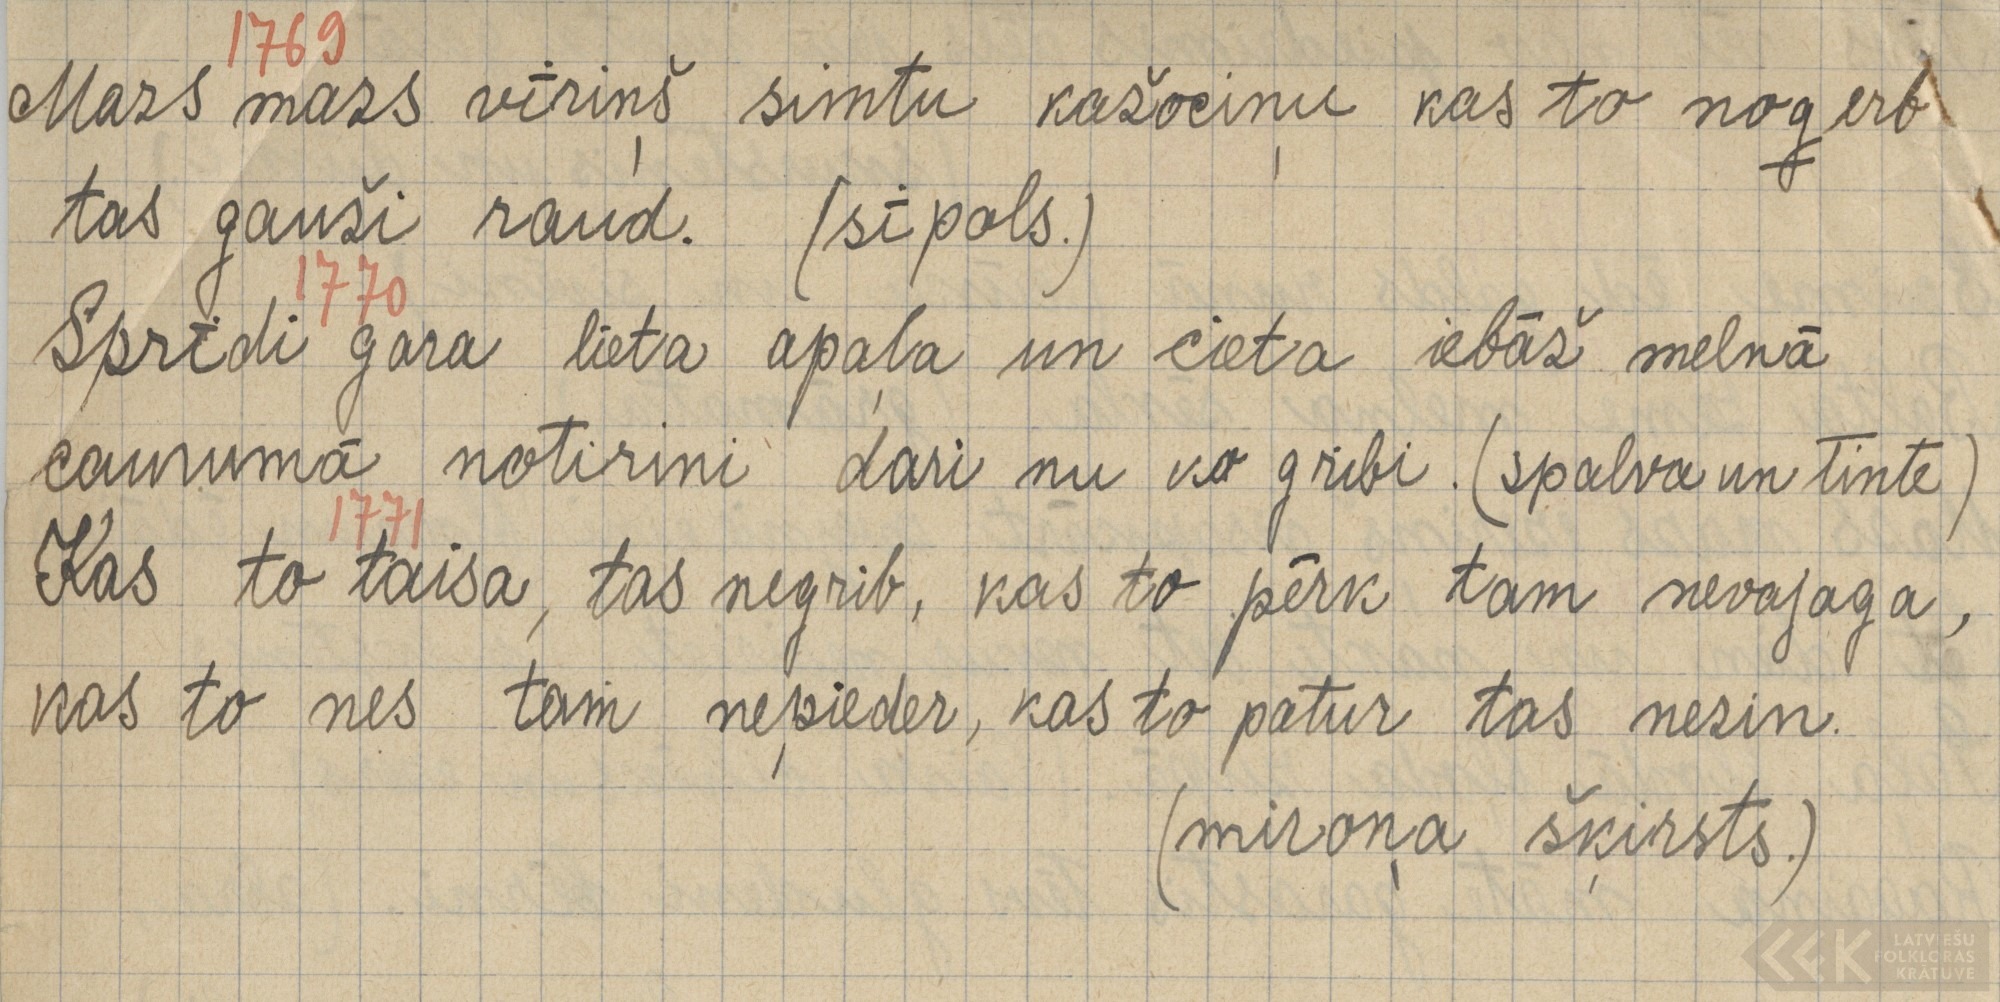 1769
Mazs mazs vīriņš simtu kažociņu kas to nogerb
tas gauži raud. (sīpols.)
1770
Sprīdi gara lieta apaļa un cieta iebāž melnā
caurumā notirini dari nu ko gribi. (spalva un tinte)
1771
Kas to taisa, tas negrib, kas to pērk tam nevajaga,
kas to nes tam nepieder, kas to patur tas nezin.
(miroņa šķirsts.)
LATVIEŠU
FOLKLORAS
KRĀTUVE